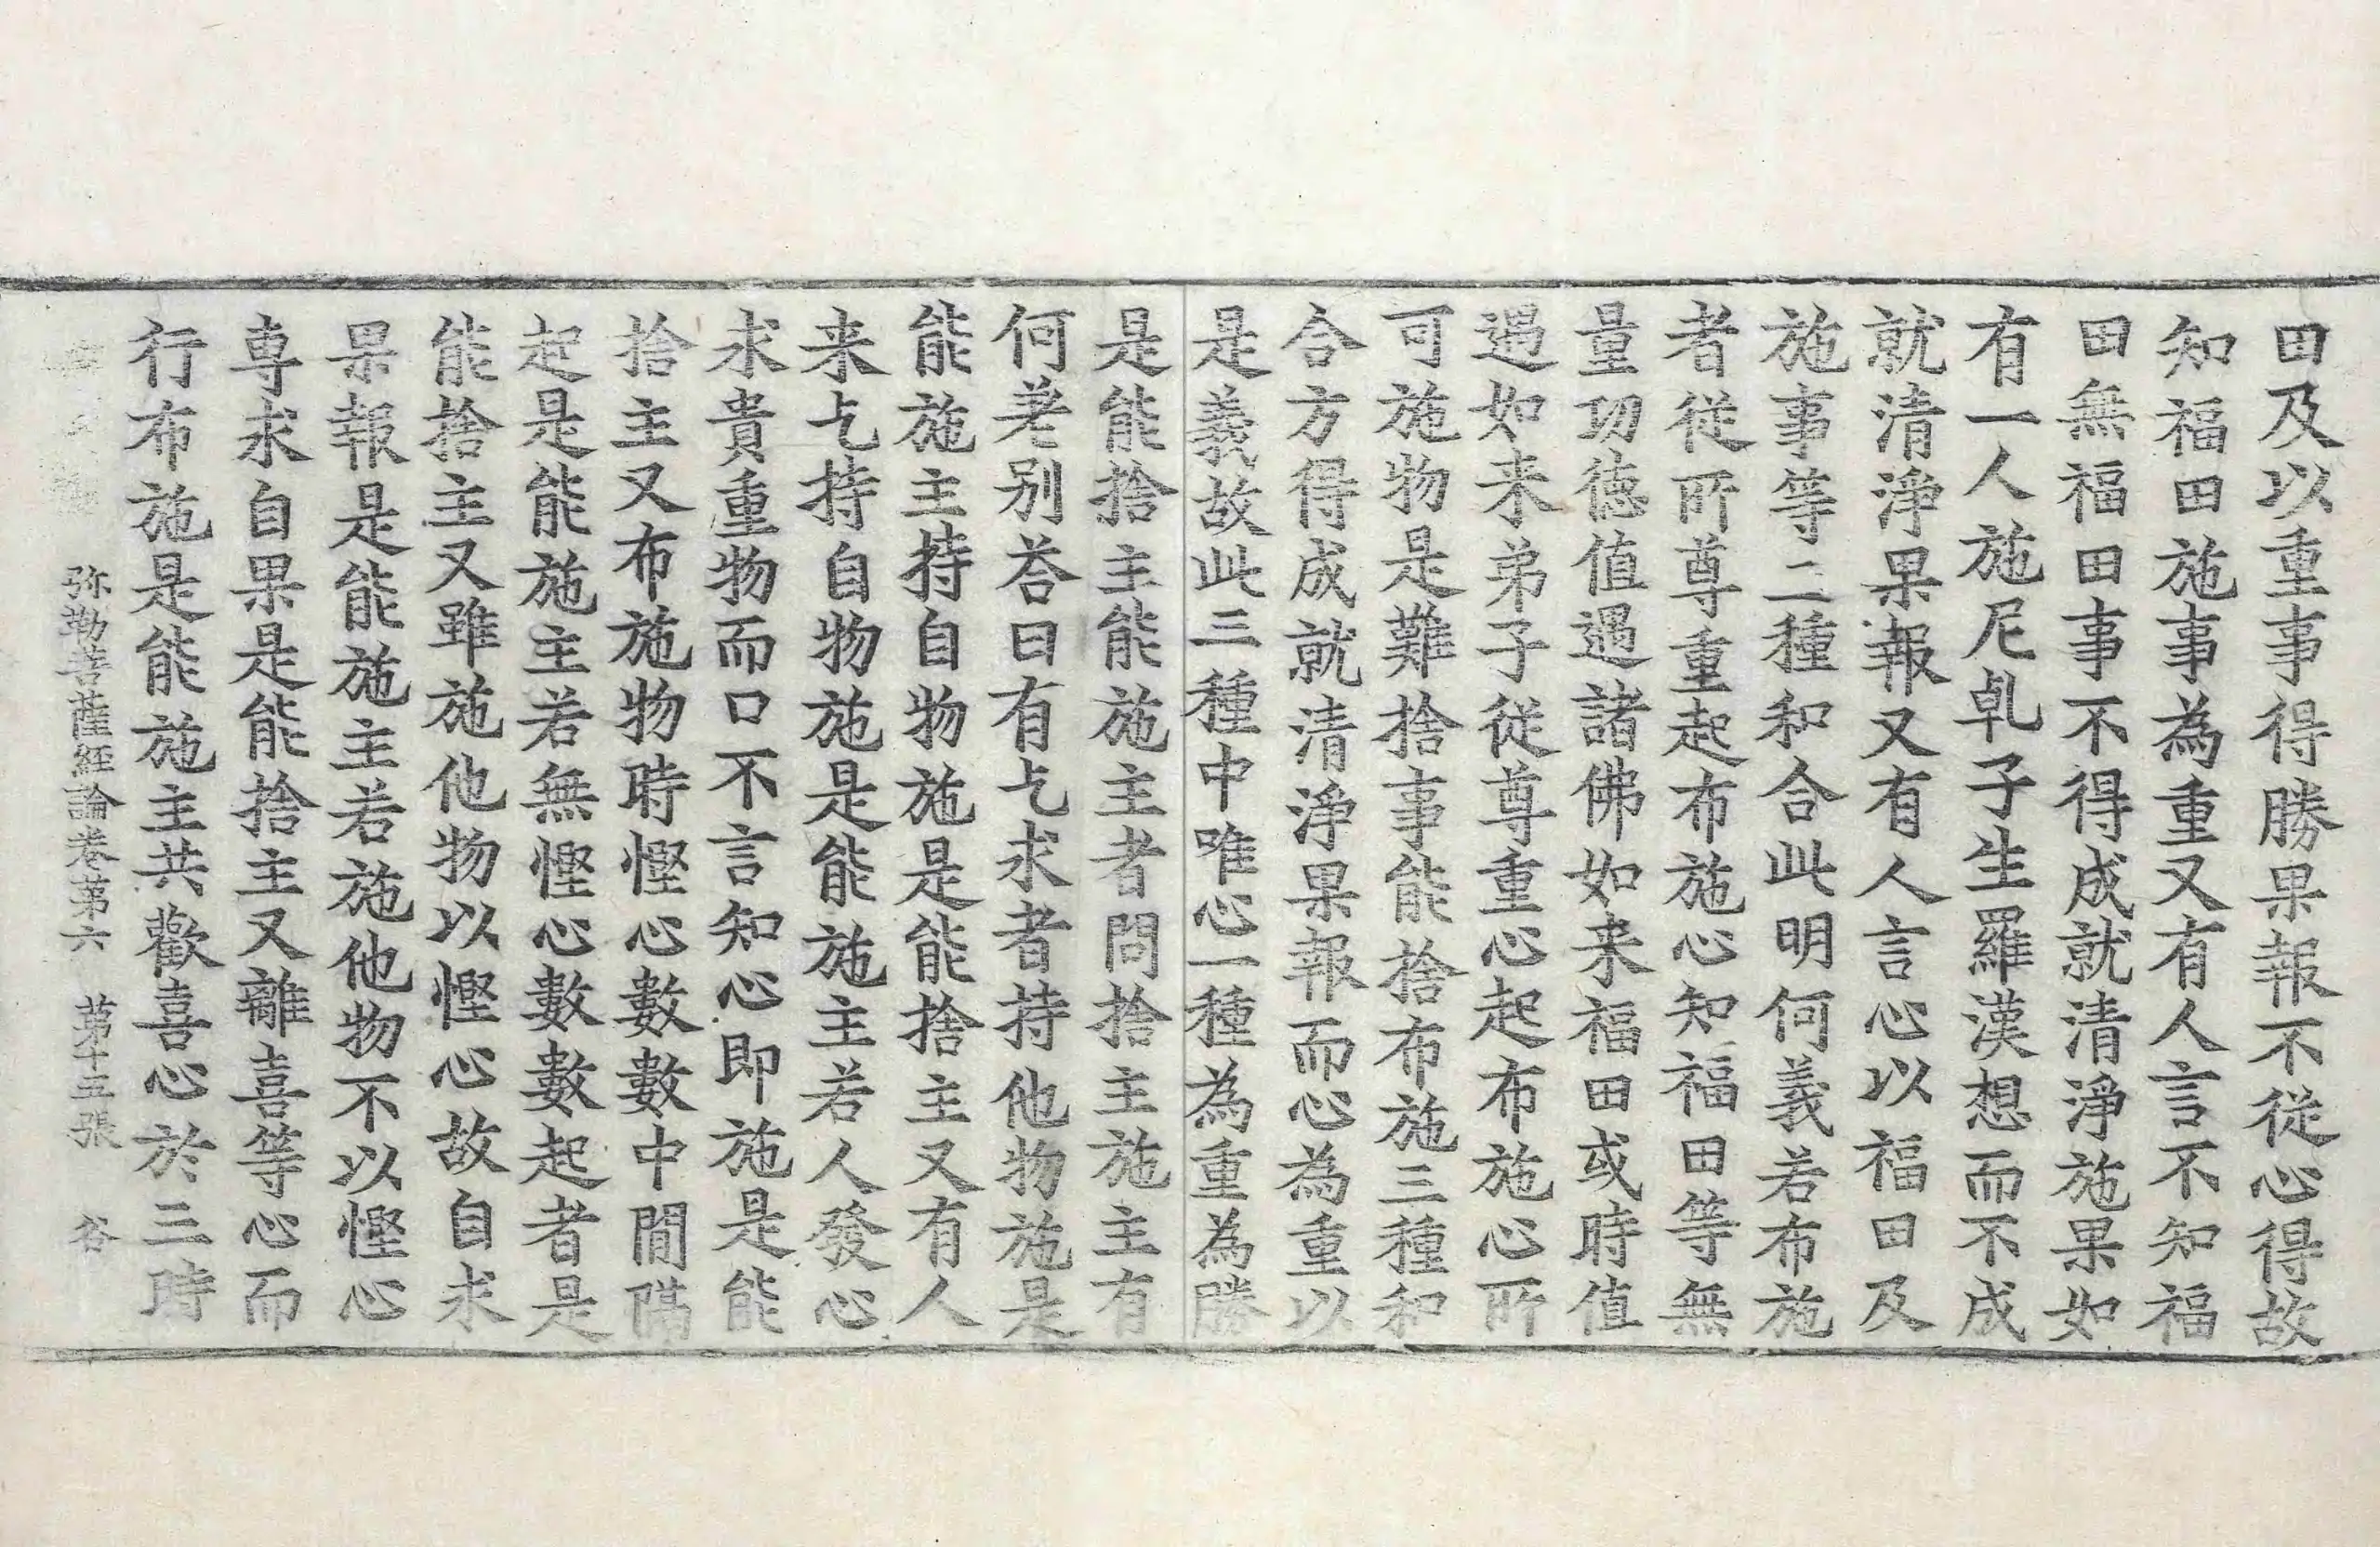 田及以重事得勝果報不從心得故
知福田施事為重又有人言不知福
田無福田事不得成就清淨施果如
有一人施尼乹子生羅漢想而不成
就清淨果報又有人言心以福田及
施事等二種和合此明何義若布施
者從所尊重起布施心知福田等無
量功德值遇諸佛如来福田或時值
遇如来弟子從尊重心起布施心所
可施物是難捨事能捨布施三種和
合方得成就清淨果報而心為重以
是義故此三種中唯心一種為重為勝
是能捨主能施主者問捨主施主有
何差别荅曰有乞求者持他物施是
能施主持自物施是能捨主又有人
来乞持自物施是能施主若人發心
求貴重物而口不言知心即施是能
捨主又布施物時慳心數數中間隔
起是能施主若無慳心數數起者是
能捨主又雖施他物以慳心故自求
果報是能施主若施他物不以慳心
専求自果是能捨主又離喜等心而
行布施是能施主共歡喜心於三時
弥勒菩薩経論卷苐六 苐十五張 谷